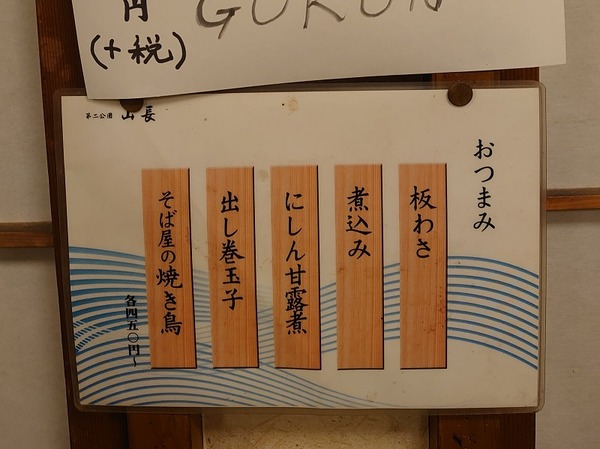 円
(+税)
GOKUN
おつまみ
板わさ
煮込み
にしん甘露煮
出し巻玉子
そば屋の焼き鳥
各四五〇円〜
第二公園 山長